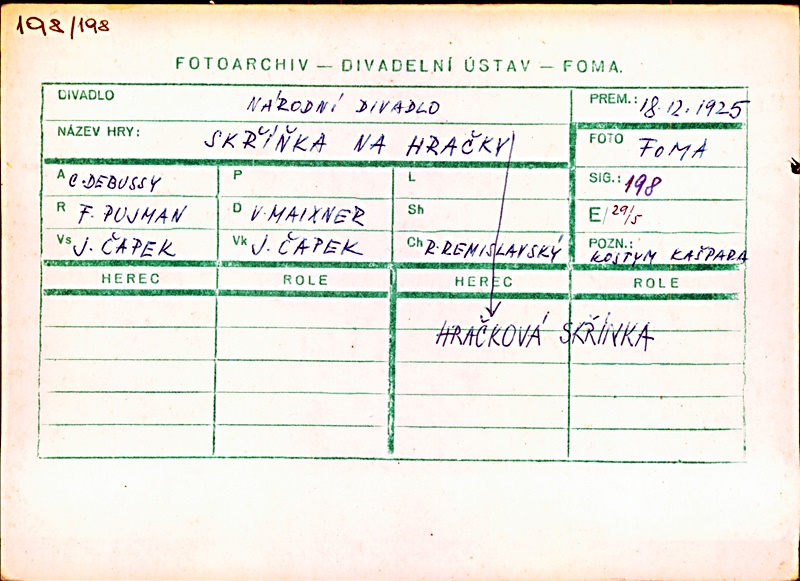 198/198
FOTOARCHIV — DIVADELNÍ ÚSTAV — FOMA.
DIVADLO NÁRODNÍ DIVADLO PREM.: 18.12.1925
NÁZEV HRY: SKŘÍŇKA NA HRAČKY FOTO FOMA
A C. DEBUSSY P L SIG.: 198
R F. PUJMAN D V. MAIXNER Sh E/29/5
Vs J. ČAPEK Vk J. ČAPEK Ch R. REMISLAVSKÝ POZN.: KOSTYM KAŠPARA
HEREC ROLE HEREC ROLE
HRAČKOVÁ SKŘÍNKA